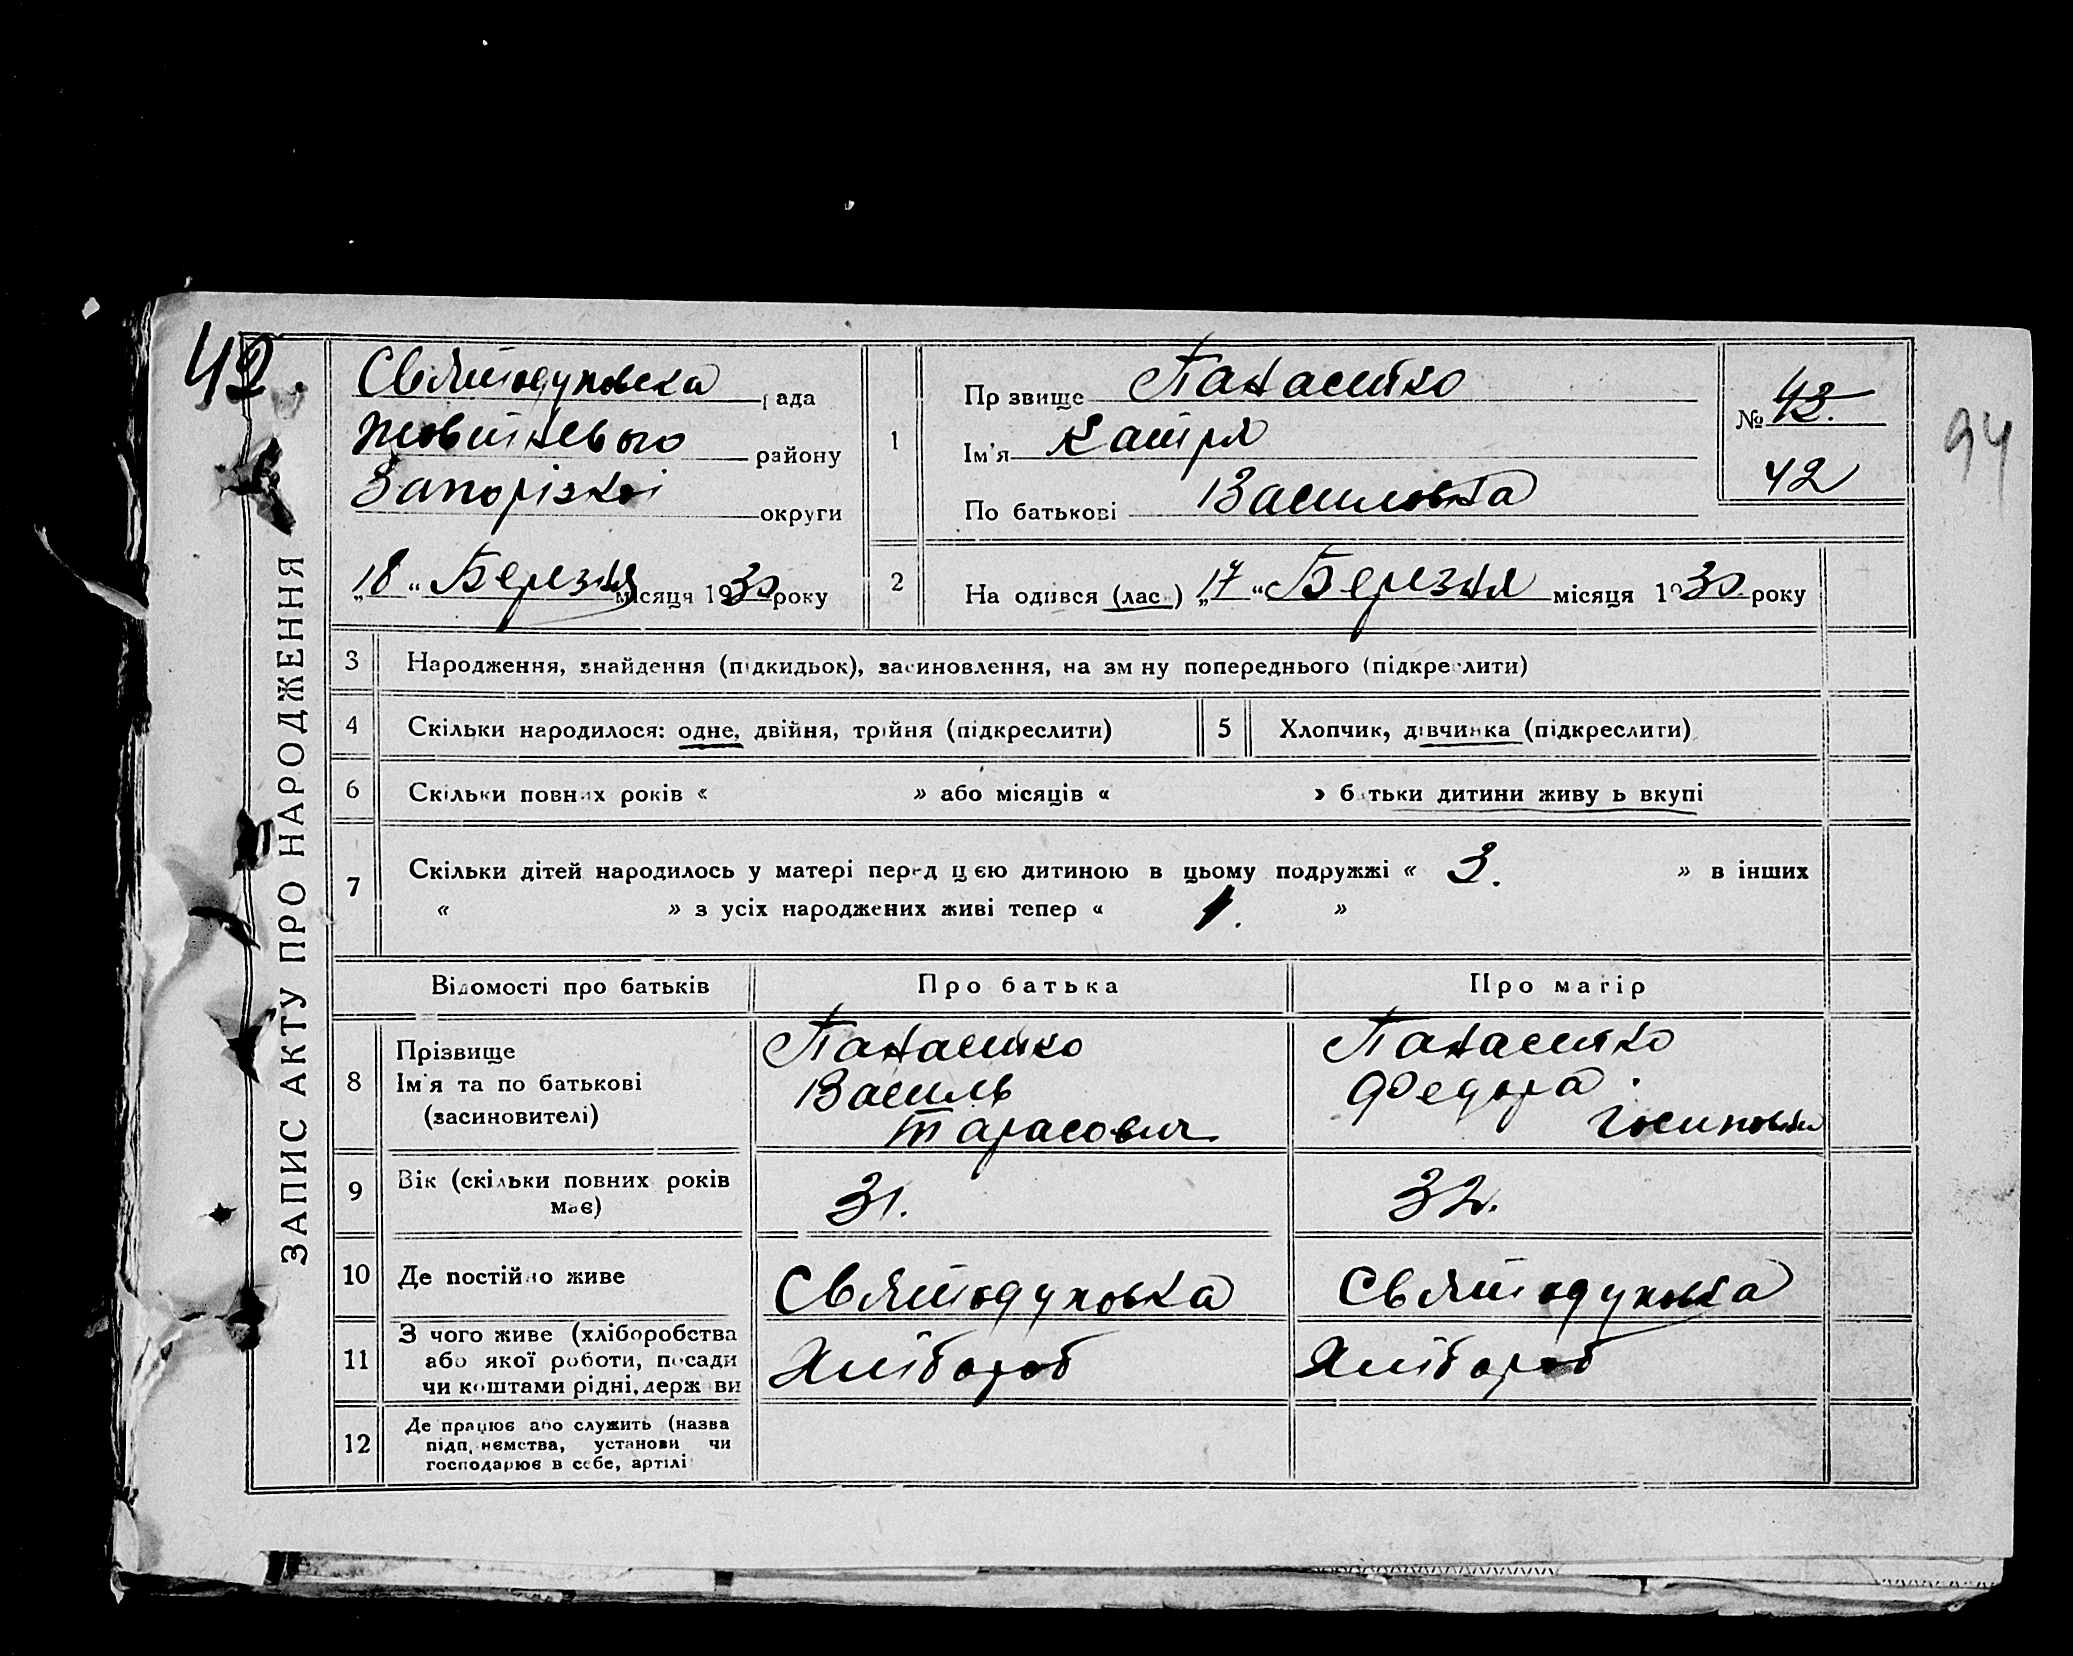 42.
ЗАПИС АКТУ ПРО НАРОДЖЕННЯ
Святодуховска рада
Жовтневого району
Запорізкої округи
„18“ Березня місяця 1930 року
1
Прзвище Панасенко
Ім'я Катря
По батькові Василовна
№ 43.
42
94
2
На одився (лас) „17“ Березня місяця 1930 року
3 Народження, знайдення (підкидьок), засиновлення, на зм ну попереднього (підкреслити)
4 Скільки народилося: одне, двійня, трійня (підкреслити)
5 Хлопчик, дівчинка (підкреслити)
6 Скільки повних років « » або місяців « » батьки дитини живу ь вкупі
7 Скільки дітей народилось у матері перед цією дитиною в цьому подружжі « 3. » в інших
« » з усіх народжених живі тепер « 1. »
Відомості про батьків
Про батька
Про матір
8 Прізвище
Ім'я та по батькові
(засиновителі)
Панасенко
Василь
Тарасович
Панасенко
Федора
9 Вік (скільки повних років
має)
31.
32.
10 Де постійно живе
Святодуховка
Святодуховка
11 З чого живе (хліборобства
або якої роботи, посади
чи коштами рідні, держ ви
Хлібороб
Хлібороб
12 Де працює або служить (назва
підп,иємства, установи чи
господарює в себе, артілі